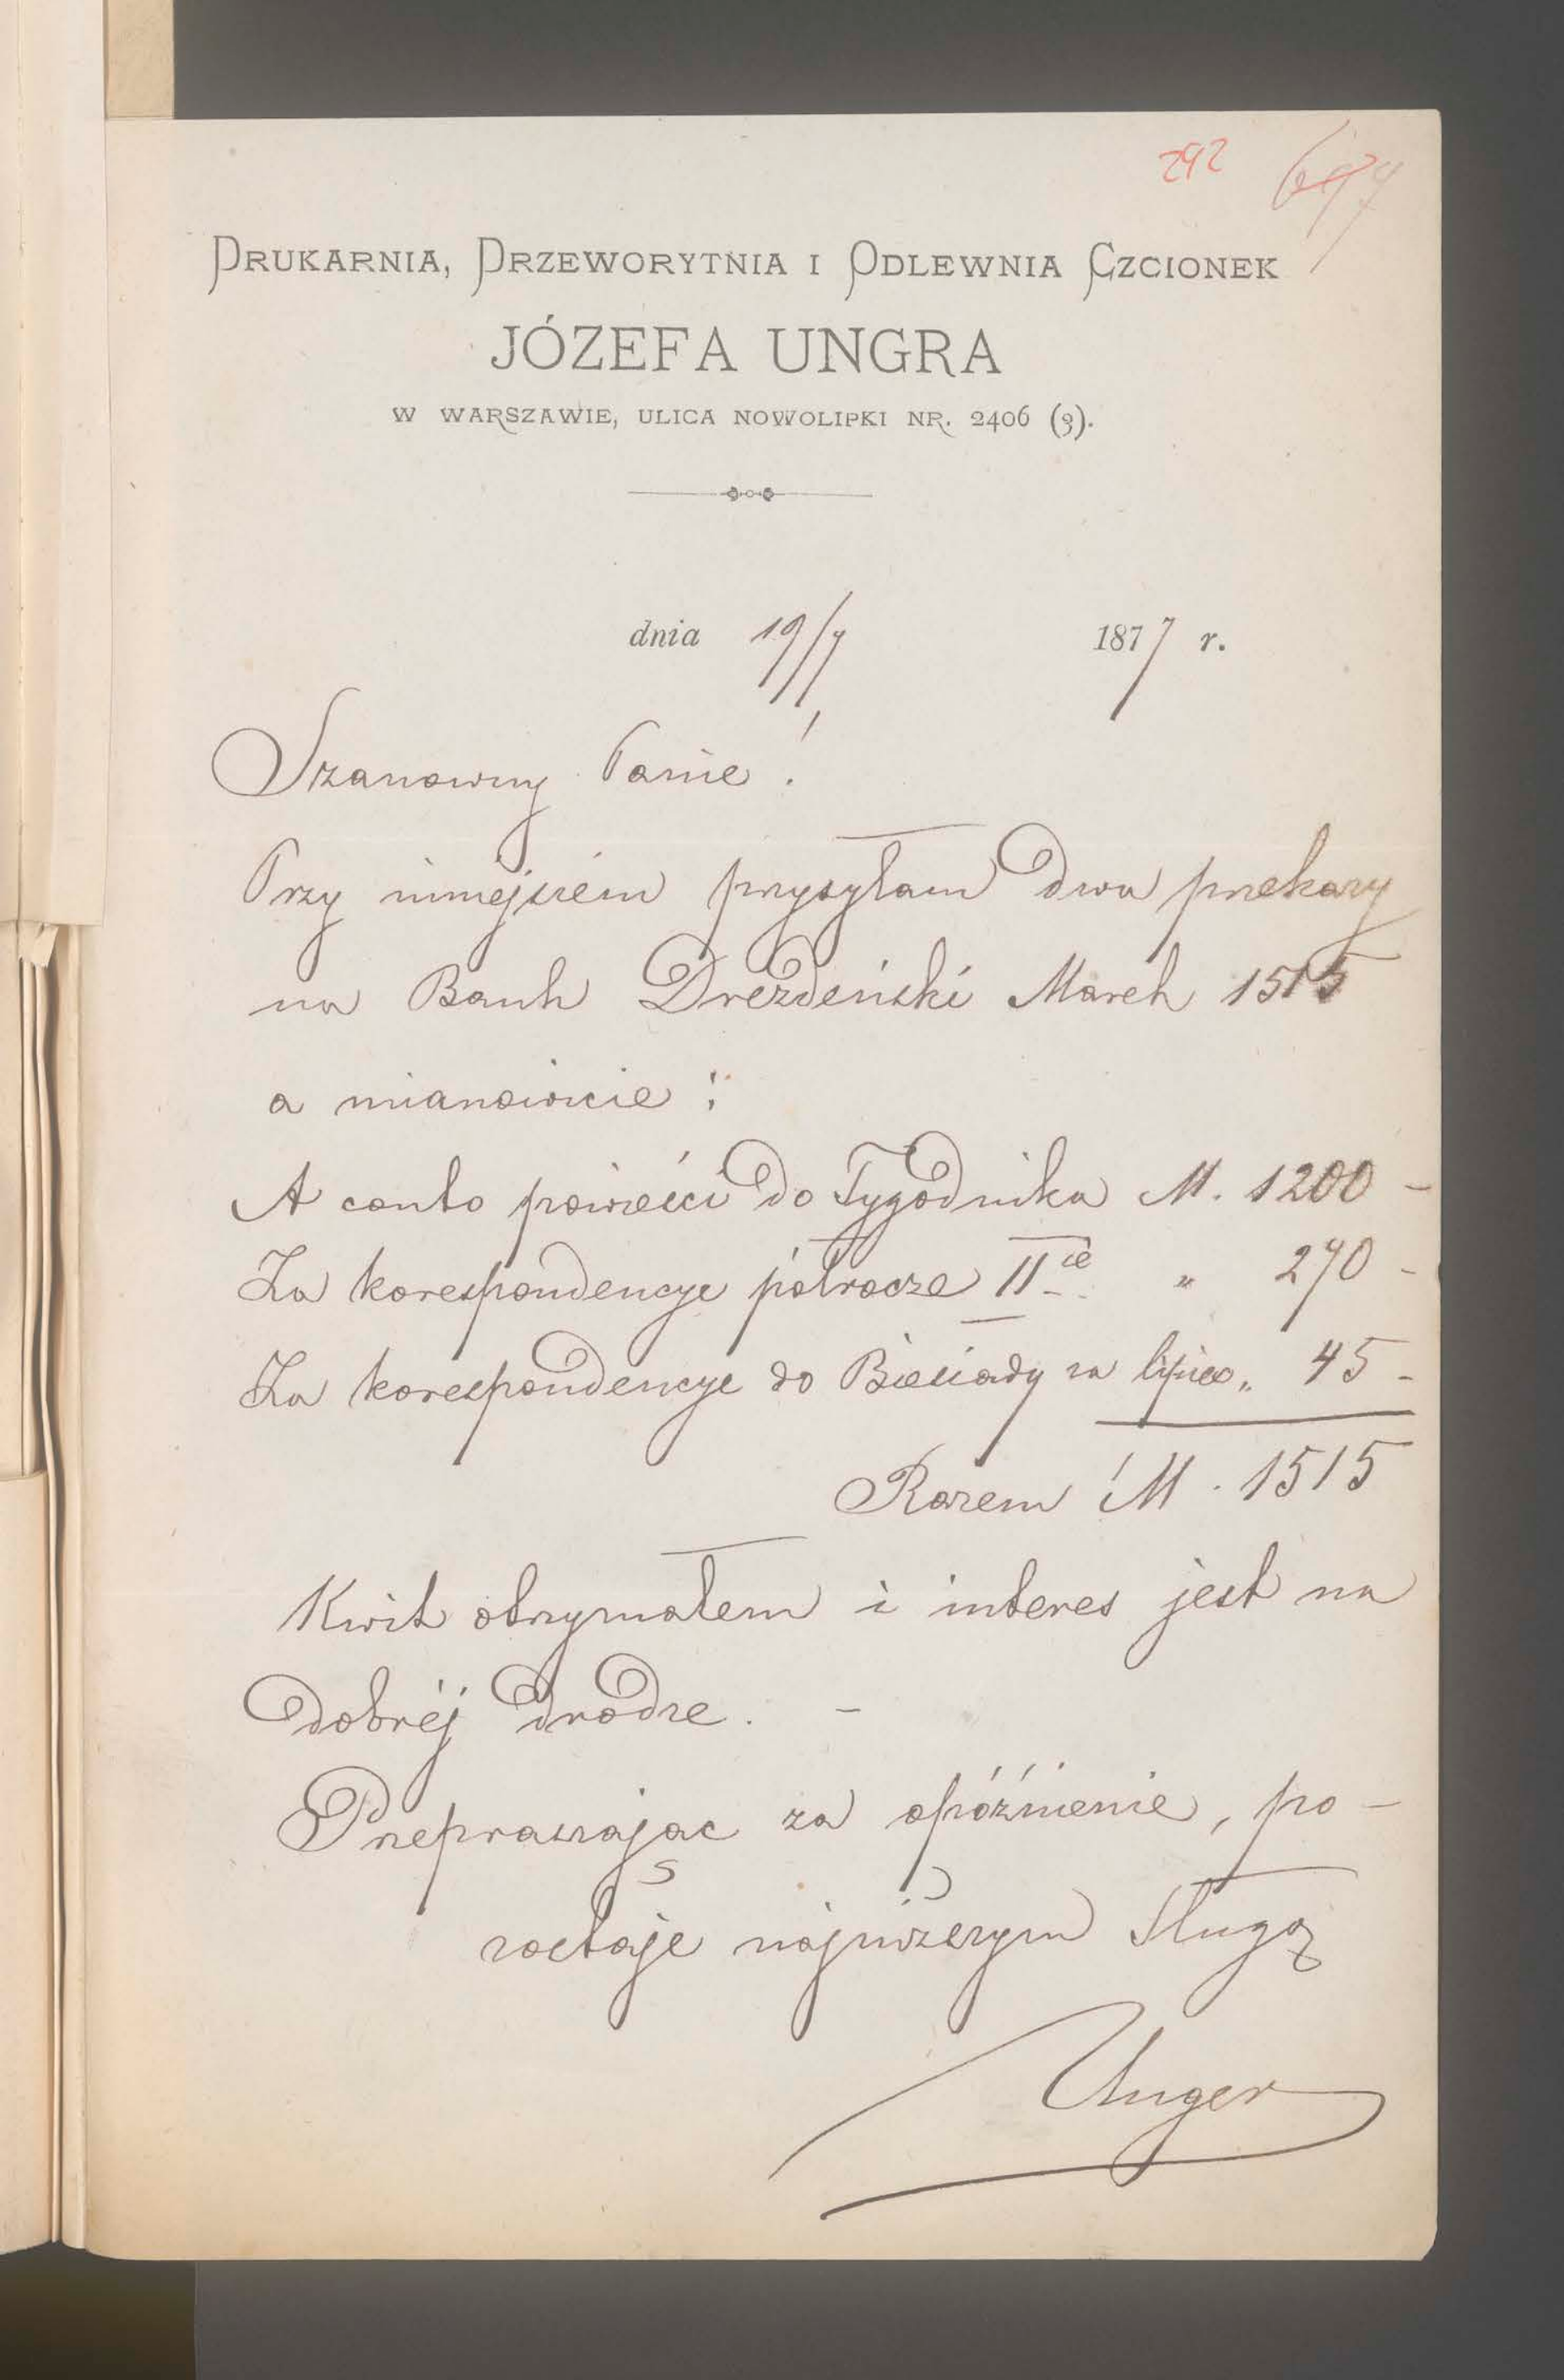 292 697
DRUKARNIA, DRZEWORYTNIA I ODLEWNIA CZCIONEK
JÓZEFA UNGRA
W WARSZAWIE, ULICA NOWOLIPKI NR. 2406 (3).
dnia 19/7 1877 r.
Szanowny Panie!
Przy niniejszém przysyłam dwa przekazy
na Bank Drezdeński Marek 1515
a mianowicie:
A conto powieści do Tygodnika M. 1200 -
Za korespondencye półrocze II ie " 270 -
Za korespondencye do Biesiady za lipiec " 45 -
Razem M. 1515
Kwit otrzymałem i interes jest na
dobréj drodze. -
Przepraszając za opóźnienie, po-
zostaję najniższym sługą
Unger